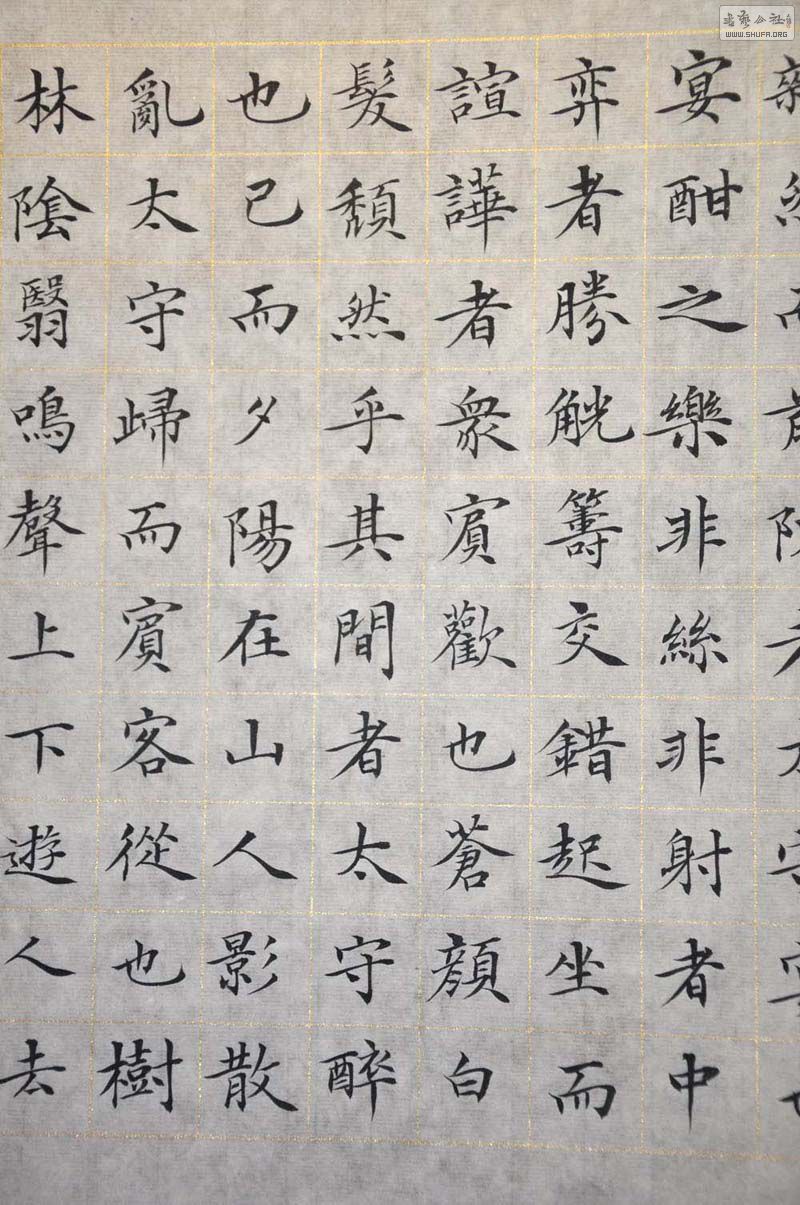 宴酣之樂非絲非射者中
弈者勝觥籌交錯起坐而
諠譁者衆賓歡也蒼顏白
髮頹然乎其間者太守醉
也已而夕陽在山人影散
亂太守歸而賓客從也樹
林陰翳鳴聲上下遊人去
书艺公社
WWW.SHUFA.ORG